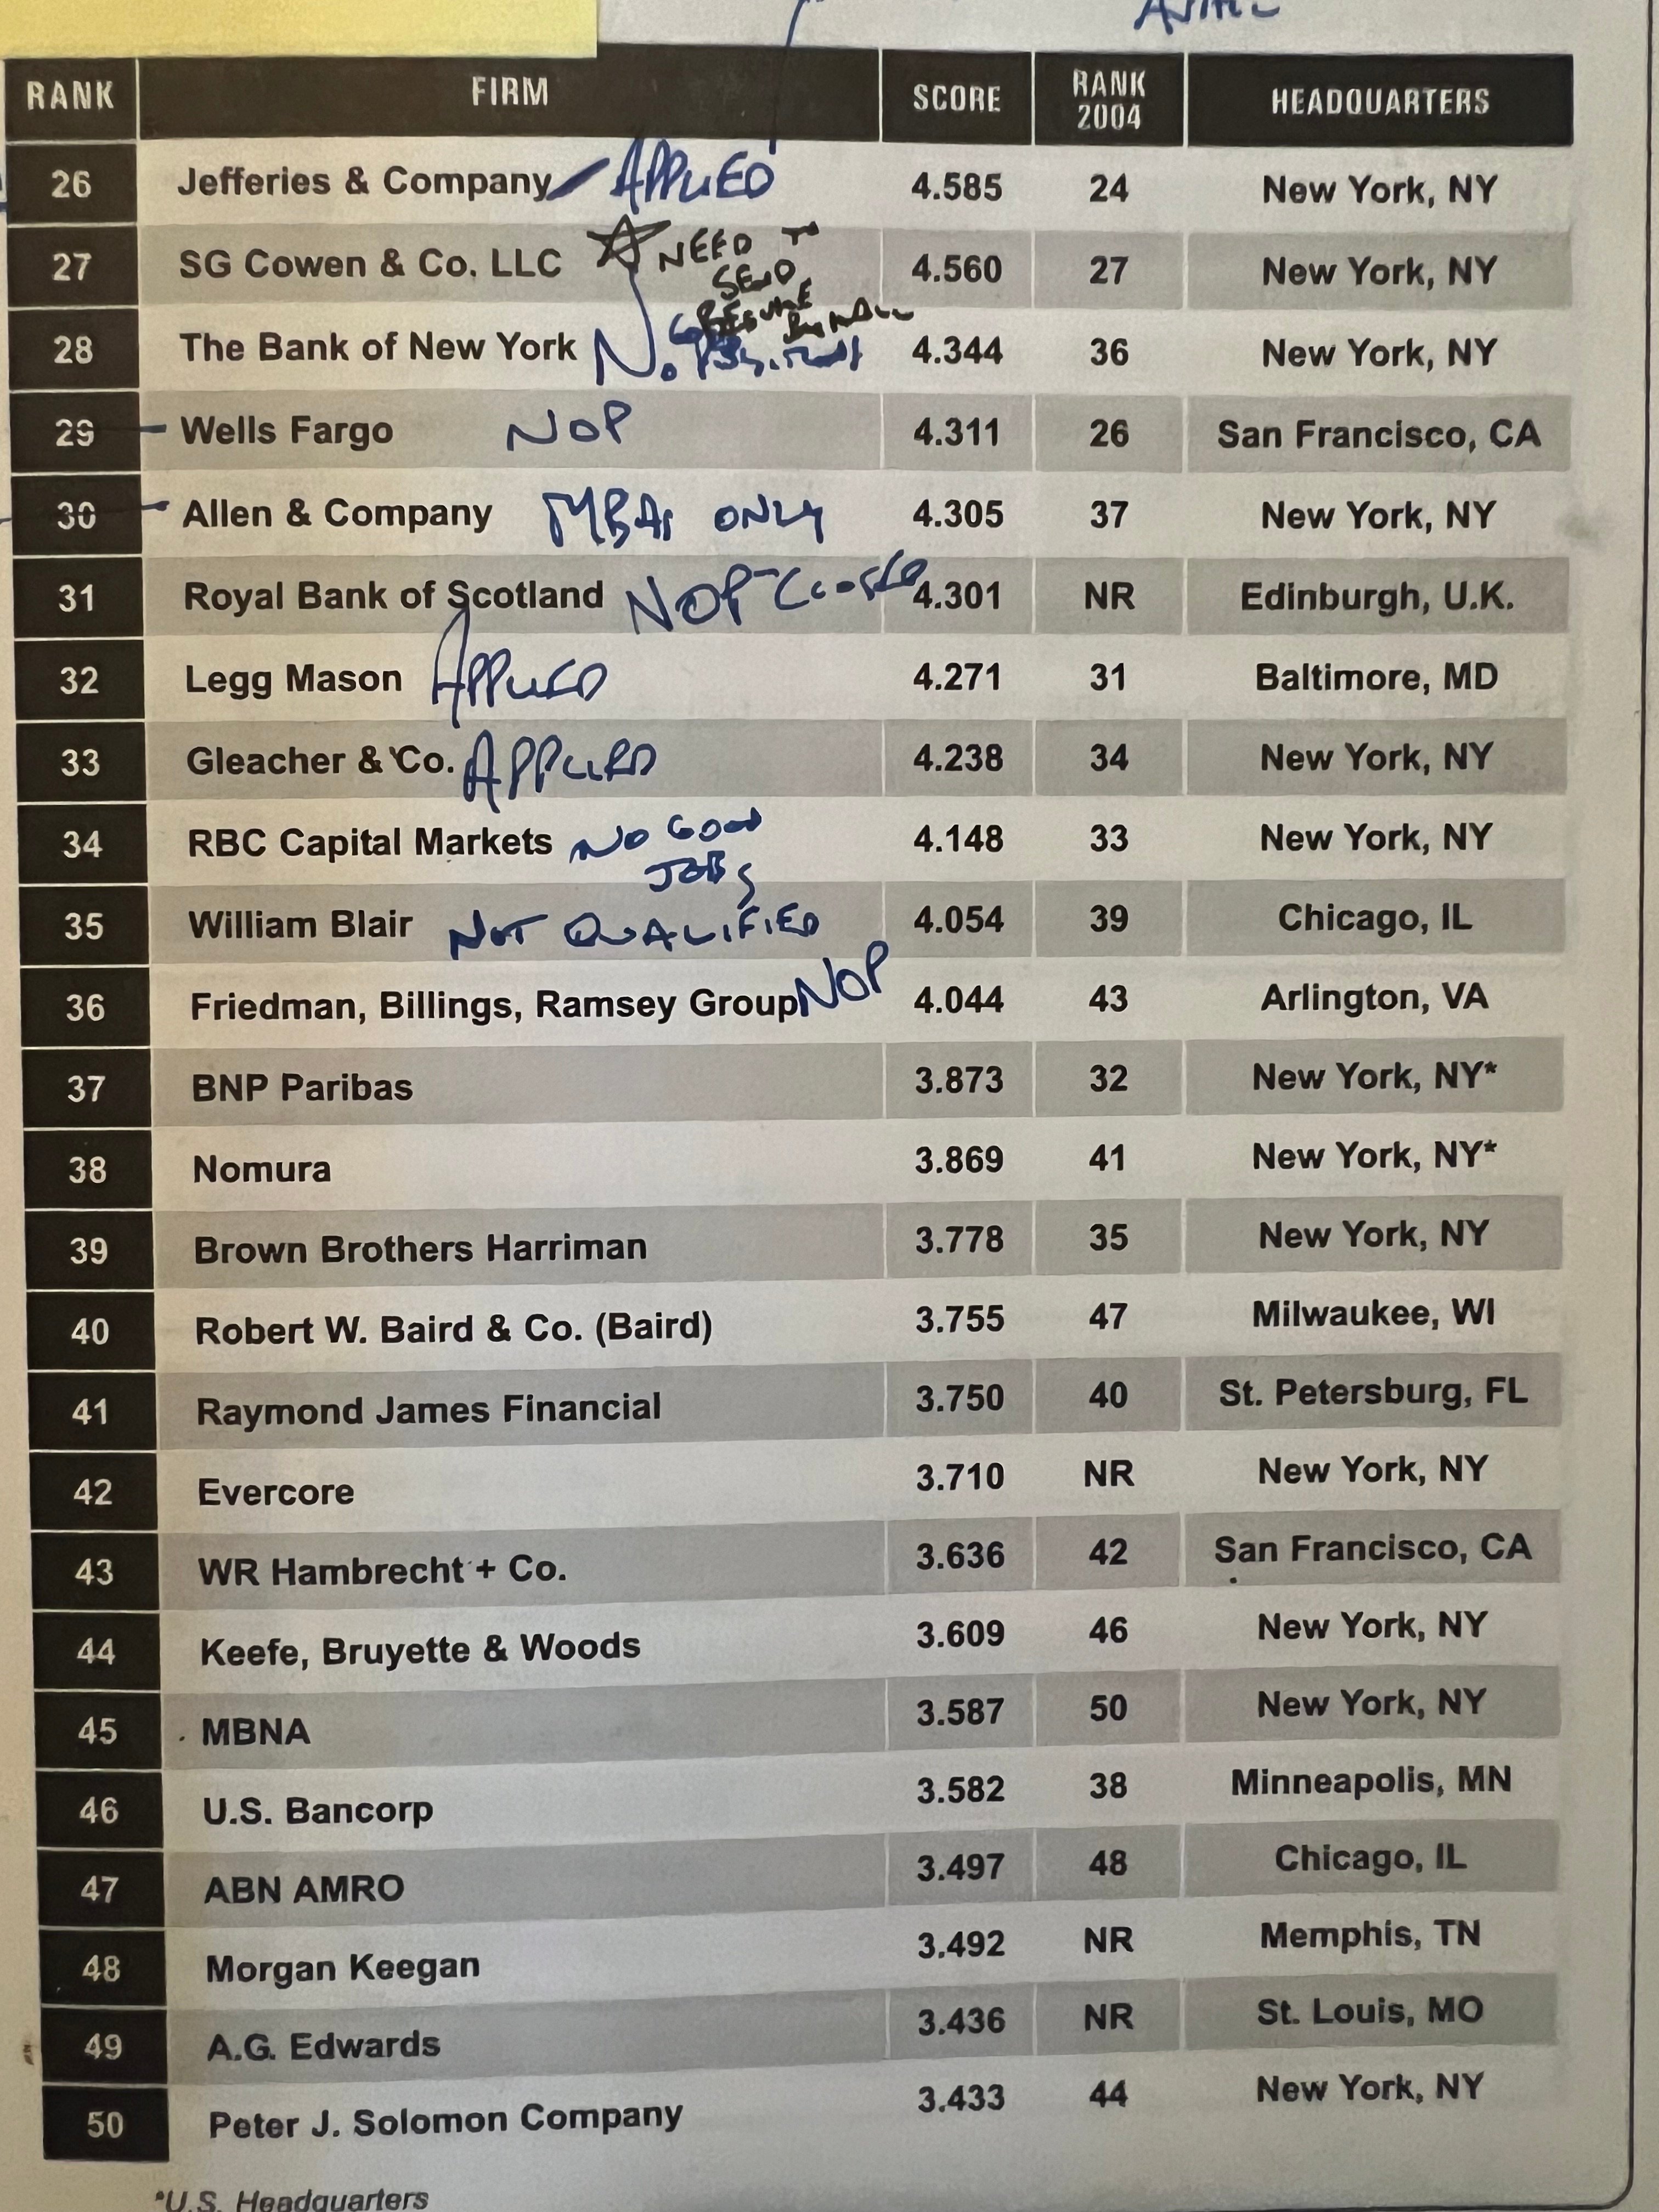 RANK FIRM SCORE RANK 2004 HEADQUARTERS
26 Jefferies & Company APPLIED 4.585 24 New York, NY
27 SG Cowen & Co. LLC NEED TO SEND RESUME BY MAIL 4.560 27 New York, NY
28 The Bank of New York No GOOD 4.344 36 New York, NY
29 Wells Fargo NOP 4.311 26 San Francisco, CA
30 Allen & Company MBAs ONLY 4.305 37 New York, NY
31 Royal Bank of Scotland NOP 4.301 NR Edinburgh, U.K.
32 Legg Mason APPLIED 4.271 31 Baltimore, MD
33 Gleacher & Co. APPLIED 4.238 34 New York, NY
34 RBC Capital Markets NO GOOD JOBS 4.148 33 New York, NY
35 William Blair NOT QUALIFIED 4.054 39 Chicago, IL
36 Friedman, Billings, Ramsey Group NOP 4.044 43 Arlington, VA
37 BNP Paribas 3.873 32 New York, NY*
38 Nomura 3.869 41 New York, NY*
39 Brown Brothers Harriman 3.778 35 New York, NY
40 Robert W. Baird & Co. (Baird) 3.755 47 Milwaukee, WI
41 Raymond James Financial 3.750 40 St. Petersburg, FL
42 Evercore 3.710 NR New York, NY
43 WR Hambrecht + Co. 3.636 42 San Francisco, CA
44 Keefe, Bruyette & Woods 3.609 46 New York, NY
45 MBNA 3.587 50 New York, NY
46 U.S. Bancorp 3.582 38 Minneapolis, MN
47 ABN AMRO 3.497 48 Chicago, IL
48 Morgan Keegan 3.492 NR Memphis, TN
49 A.G. Edwards 3.436 NR St. Louis, MO
50 Peter J. Solomon Company 3.433 44 New York, NY
*U.S. Headquarters